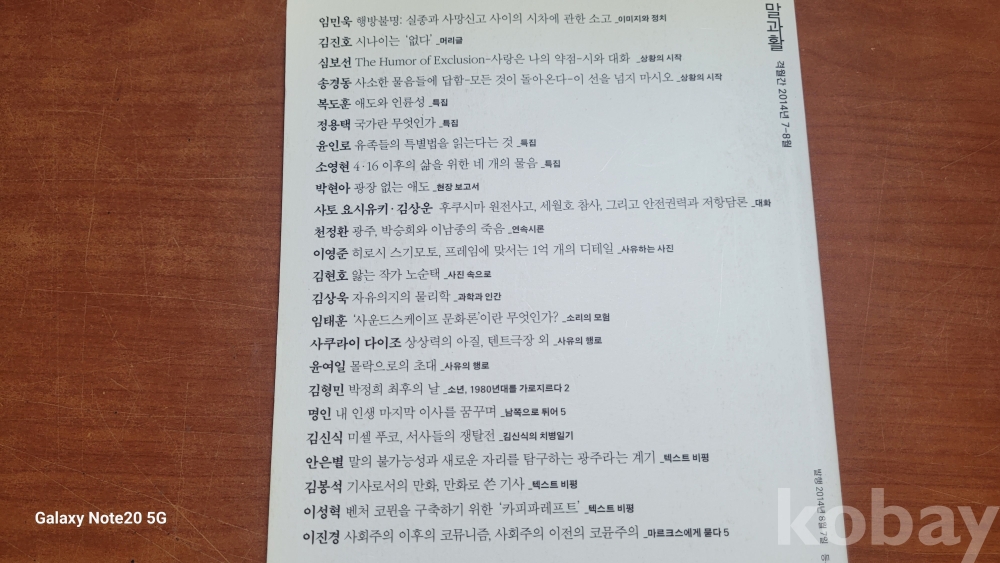 임민욱 행방불명: 실종과 사망신고 사이의 시차에 관한 소고 _이미지와 정치
김진호 시나이는 ‘없다’ _머리글
심보선 The Humor of Exclusion-사랑은 나의 약점-시와 대화 _상황의 시작
송경동 사소한 물음들에 답함-모든 것이 돌아온다-이 선을 넘지 마시오 _상황의 시작
복도훈 애도와 인륜성 _특집
정용택 국가란 무엇인가 _특집
윤인로 유족들의 특별법을 읽는다는 것 _특집
소영현 4·16 이후의 삶을 위한 네 개의 물음 _특집
박현아 광장 없는 애도 _현장 보고서
사토 요시유키·김상운 후쿠시마 원전사고, 세월호 참사, 그리고 안전권력과 저항담론 _대화
천정환 광주, 박승희와 이남종의 죽음 _연속시론
이영준 히로시 스기모토, 프레임에 맞서는 1억 개의 디테일 _사유하는 사진
김현호 앓는 작가 노순택 _사진 속으로
김상욱 자유의지의 물리학 _과학과 인간
임태훈 ‘사운드스케이프 문화론’이란 무엇인가? _소리의 모험
사쿠라이 다이조 상상력의 아질, 텐트극장 외 _사유의 행로
윤여일 몰락으로의 초대 _사유의 행로
김형민 박정희 최후의 날 _소년, 1980년대를 가로지르다 2
명인 내 인생 마지막 이사를 꿈꾸며 _남쪽으로 튀어 5
김신식 미셸 푸코, 서사들의 쟁탈전 _김신식의 치병일기
안은별 말의 불가능성과 새로운 자리를 탐구하는 광주라는 계기 _텍스트 비평
김봉석 기사로서의 만화, 만화로 쓴 기사 _텍스트 비평
이성혁 벤처 코뮌을 구축하기 위한 ‘카피파레프트’ _텍스트 비평
이진경 사회주의 이후의 코뮤니즘, 사회주의 이전의 코뮨주의 _마르크스에게 묻다 5
말과활
격월간 2014년 7-8월
발행 2014년 8월 7일
Galaxy Note20 5G
kobay